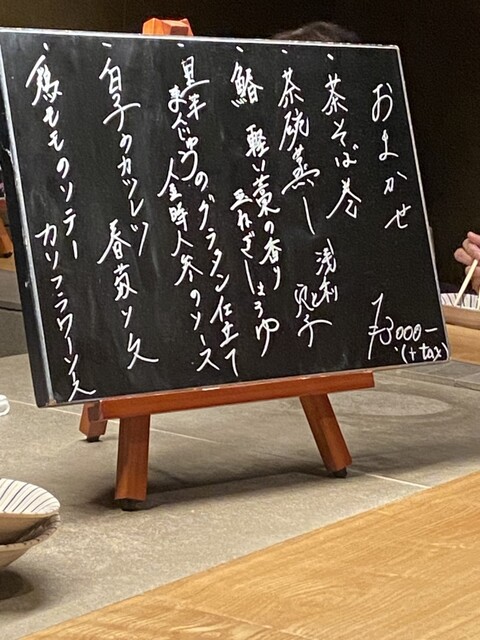 おまかせ
¥3000-
(+tax)
・茶そば巻
・茶碗蒸し 浅利と穴子
・鰆 軽い藁の香り
玉ねぎしょうゆ
・里芋
まんじゅうのグラタン仕立て
金時人参のソース
・白子のカツレツ
春菊ソース
・鴨モモのソテー
カリフラワーソース